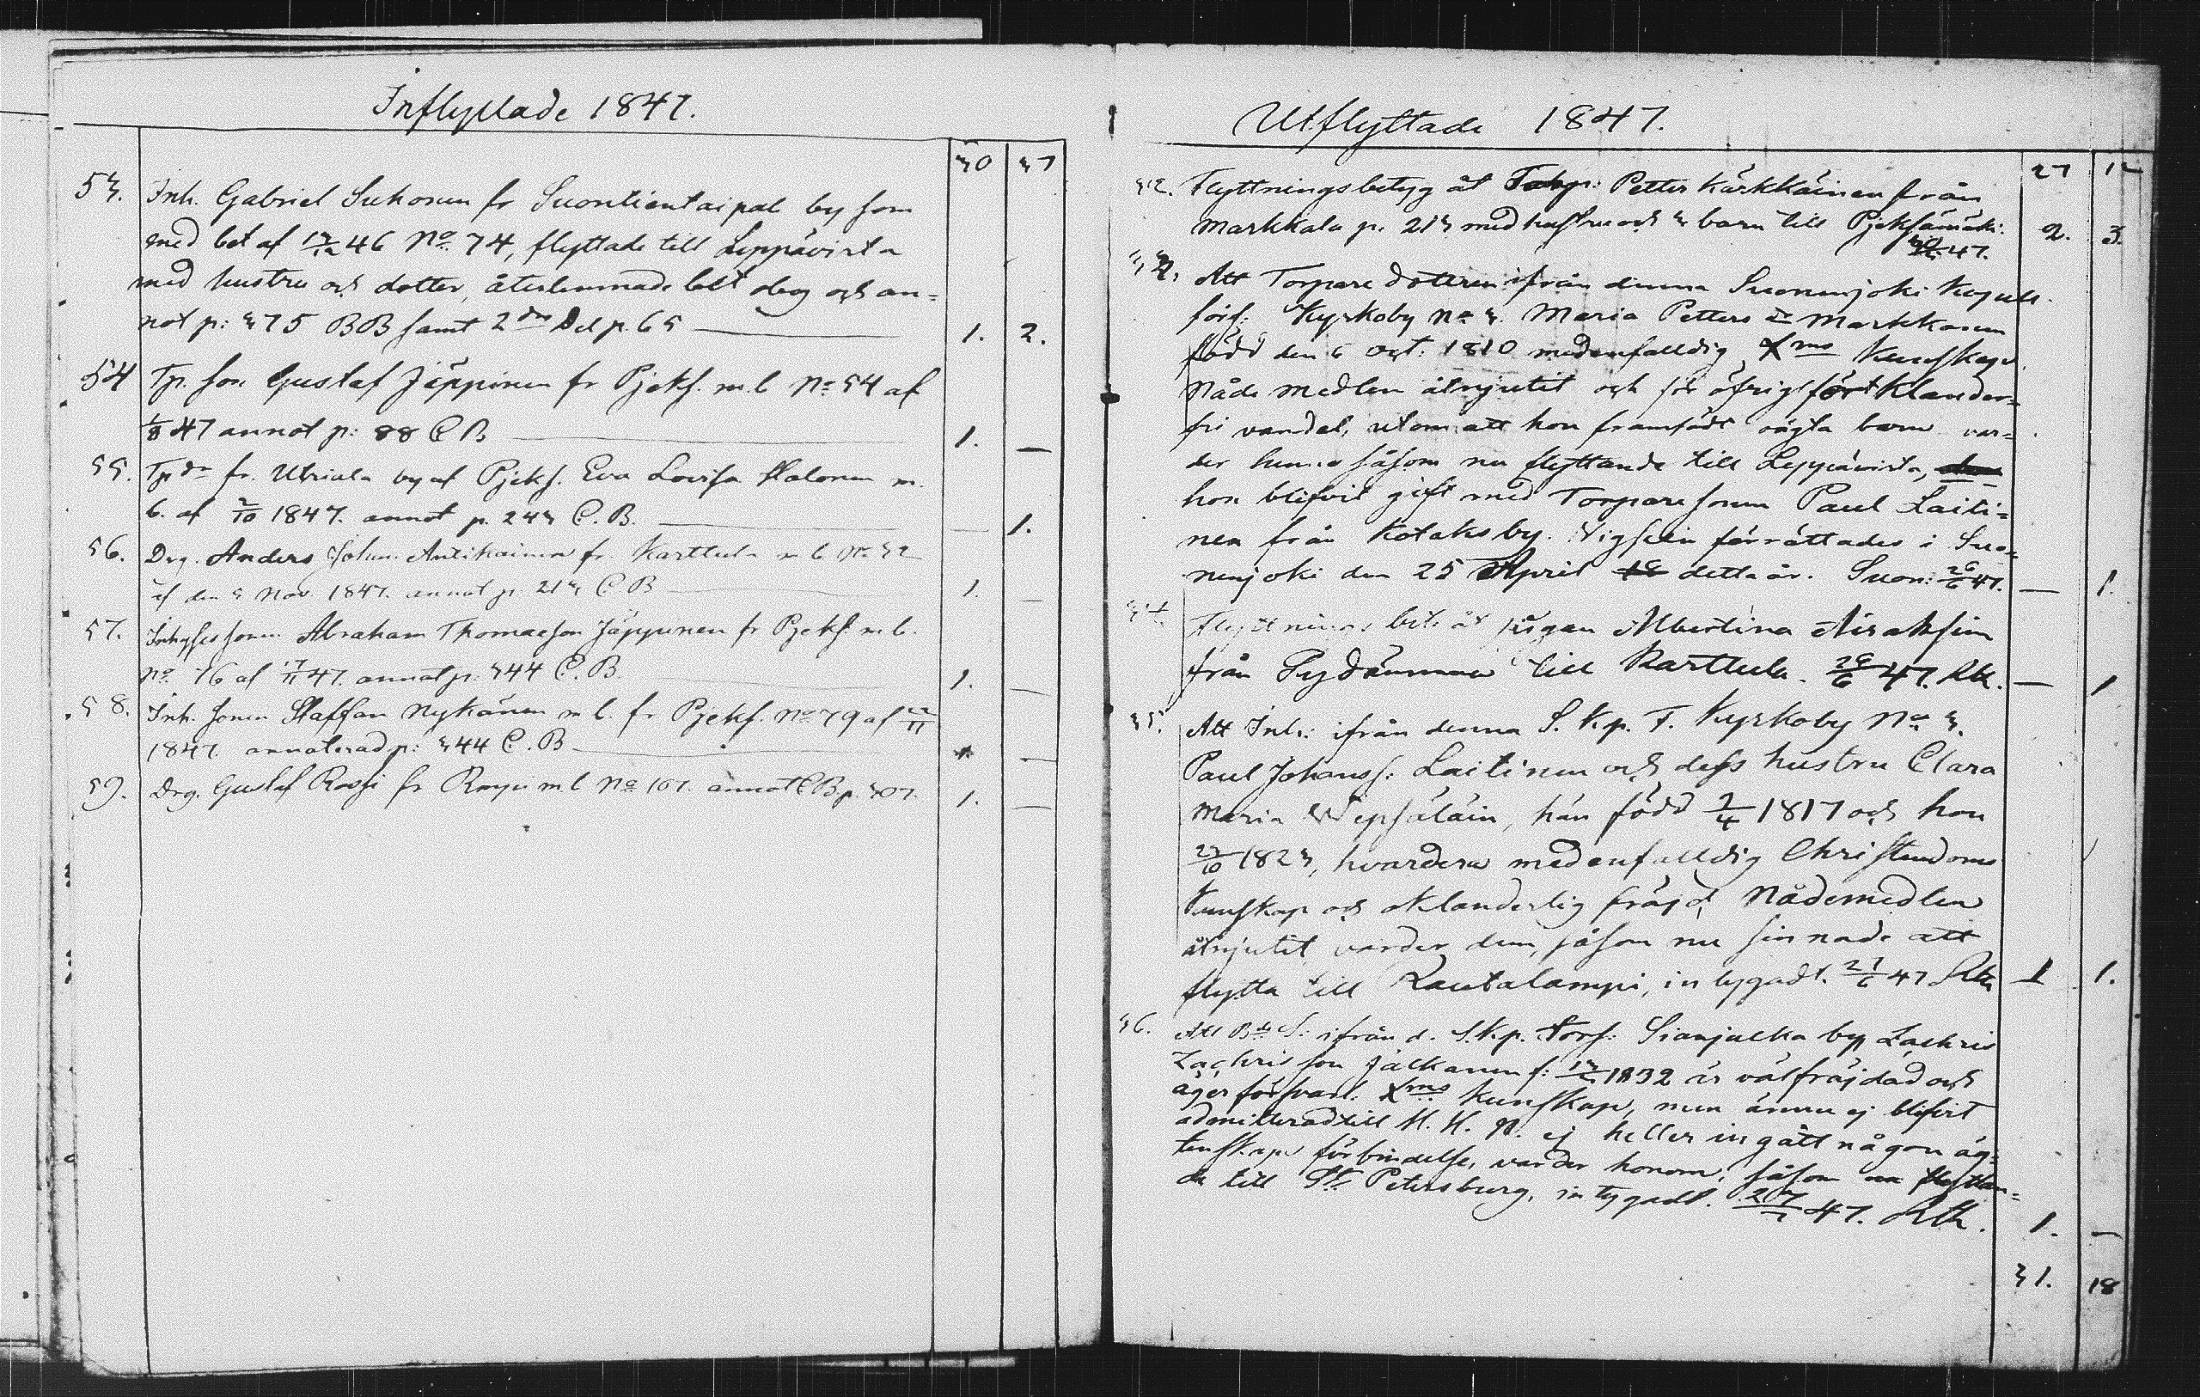 Inflyttade 1847.
30 37
53. Inh. Gabriel Sukonen fr Suontientaipal by som
med bet af 46 No. 74, flyttade till Leppävirta
med hustru och dotter, återlemnade bet deg och an=
not p: 375 BB samt 2dra Del p. 65 1. 2.
54 Tp. son Gustaf Jäppinen fr Pjeks. m. b No. 54 af
1/8 47 annot p: 88 C B 1. —
55. Tp dr fr. Utriala by af Pjeks. Eva Lovisa Halonen m.
b. af 2/10 1847. annot p. 243 C. B. — 1.
56. Drg. Anders Johan Antikainen fr. Karttula m b No 32
af den 3 Nov. 1847. annot p. 213 C B 1. —
57. Inhysessonen Abraham Thomasson Jäppinen fr Pjeks m. b.
No 76 af 17/11 47. annot p: 344 C. B. 1. —
58. Inh. sonen Staffan Nykänen m b. fr Pjeks. No. 79 af 22/11
1847. annoterad p: 344 C. B —
59. Drg. Gustaf Rossi fr m b No 107. annot C B p. 307. 1. —
Utflyttade 1847.
27 12
32. Flyttningsbetyg åt Petter Kärkkäinen från
Markkala p. 213 med hustru och 3 barn till Pjeksämäki. 2. 3.
47.
33. Att Torpare dottren ifrån denna Suonenjoki Kapell
förs: Kyrkoby No 3. Maria Petters dr Markkanen
född den 6 Oct. 1810 med enfalldig Xms Kunskap
Nåde medlen åtnjutit och för öfrigt fört Klander=
fri vandel, utom att hon framfödt oägta barn var=
der henne såsom nu flyttande till Leppävirta,
hon blifvit gift med Torpare sonen Paul Laiti=
nen från Kotaksby. Vigseln förrättades i Suo=
nenjoki den 25 April detta år. Suon: 26/6 47. — 1.
34. Flyttnings bet. åt pigan Albertina Airaksin
från till Karttula. 26/6 47. — 1
35. Att Inh: ifrån denna S. K. p. F. Kyrkoby No. 3.
Paul Johanss: Laitinen och dess hustru Clara
Maria Wepsäläin, han född 2/4 1817 och hon
27/6 1823, hvardera med enfalldig Christendoms
Kunskap och oklanderlig fräjd, Nådemedlen
åtnjutit varder dem, såsom nu sinnade att
flytta till Rautalampi, in tygadt. 27/6 47 1 1.
36. Att Bd S: ifrån d. S. K. p. Förs: Sianjalka by Zachris
Zachrisson Jalkanen f: 1832 är välfräjdad och
äger försvarl. Xms Kunskap, men ännu ej blifvit
admitterad till H. H. N. ej heller ingått någon äg=
tenskaps förbindelse, varder honom, såsom nu flyttan=
de till St. Petersburg, in tygadt. 47. 1. —
31. 18